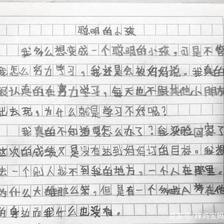 聪明的小孩
我多么想变成一个聪明的小孩，可是不管
我怎么努力学习，我还是会被妈妈说。我真的
很认真的在努力学习，每天也没和其他小朋友
出去玩，为什么就是学习不好呢？
我真的不知道要怎么办了？我没脸回家了
这次的成绩又是没有达到妈妈订的目标。我想
去一个别人找不到我的地方，一个人在那里。
为什么大 那么笨，但是有一个幼
的身边我什么也没有。